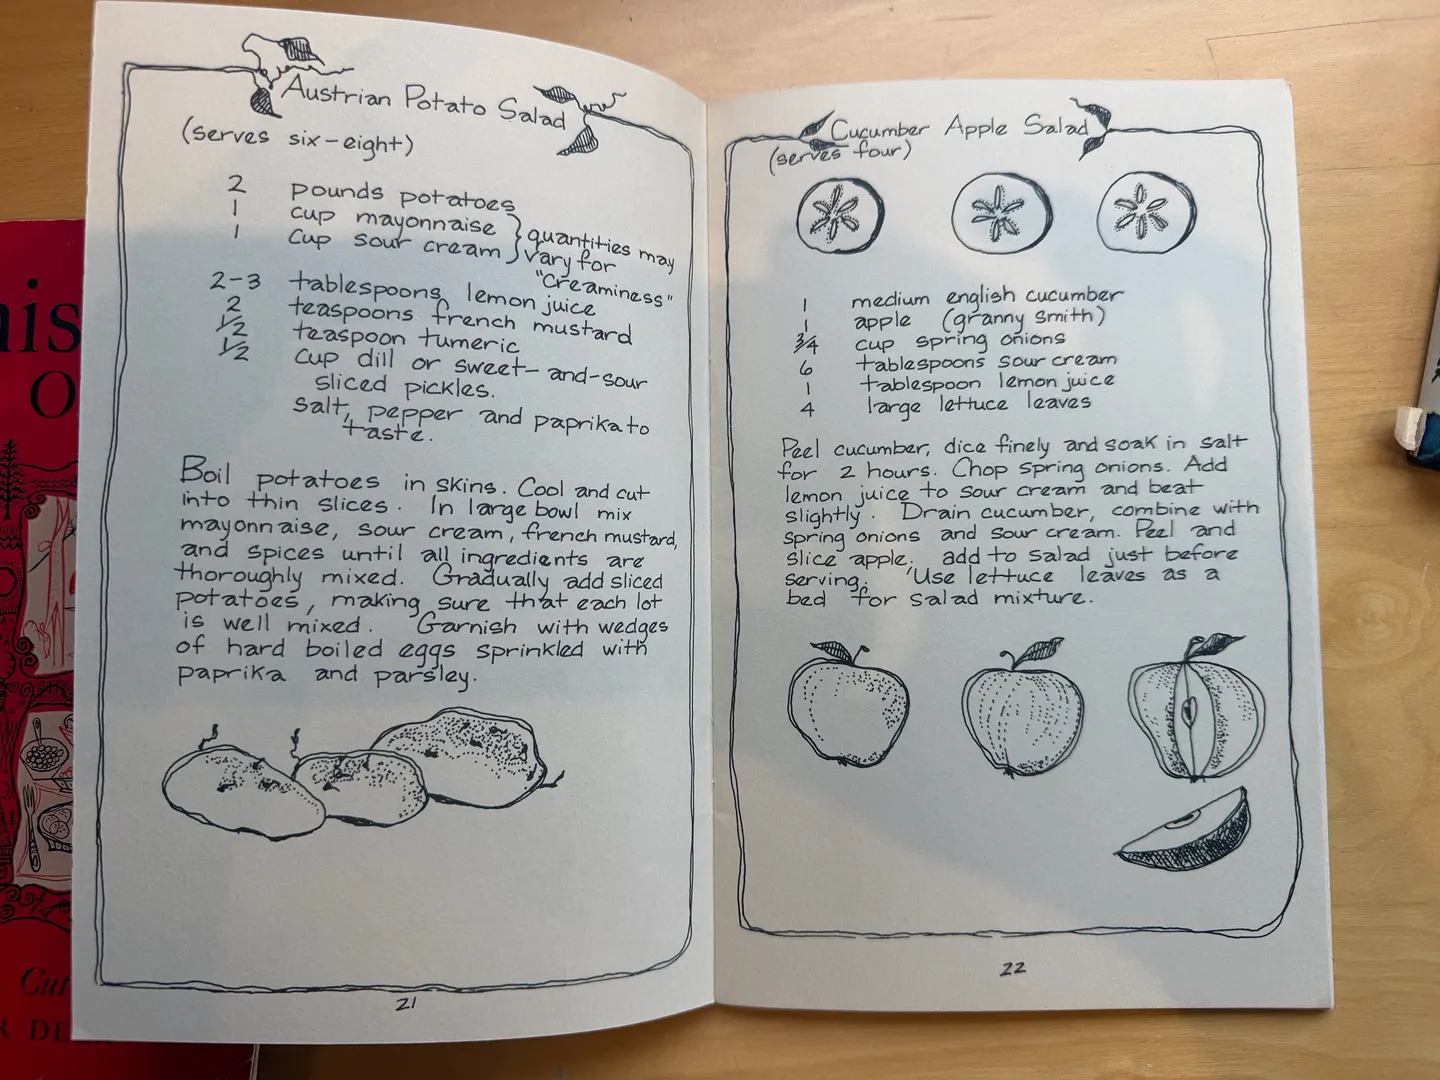 Austrian Potato Salad
(serves six-eight)
2 pounds potatoes
1 cup mayonnaise
1 cup sour cream
} quantities may
vary for
"Creaminess"
2-3 tablespoons lemon juice
2 teaspoons french mustard
1/2 teaspoon tumeric
1/2 cup dill or sweet-and-sour
sliced pickles.
salt, pepper and paprika to
taste.
Boil potatoes in skins. Cool and cut
into thin slices. In large bowl mix
mayonnaise, sour cream, french mustard,
and spices until all ingredients are
thoroughly mixed. Gradually add sliced
potatoes, making sure that each lot
is well mixed. Garnish with wedges
of hard boiled eggs sprinkled with
paprika and parsley.
21
Cucumber Apple Salad
(serves four)
1 medium english cucumber
1 apple (granny smith)
3/4 cup spring onions
6 tablespoons sour cream
1 tablespoon lemon juice
4 large lettuce leaves
Peel cucumber, dice finely and soak in salt
for 2 hours. Chop spring onions. Add
lemon juice to sour cream and beat
slightly. Drain cucumber, combine with
spring onions and sour cream. Peel and
slice apple; add to salad just before
serving. Use lettuce leaves as a
bed for salad mixture.
22